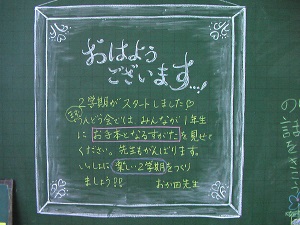 おはよう
ございます…!
2学期がスタートしました♡
うんどう会では、みんなが1年生
に お手本となるすがた を見せて
ください。先生もがんばります。
いっしょに 楽しい2学期をつくり
ましょう!!
おか田先生